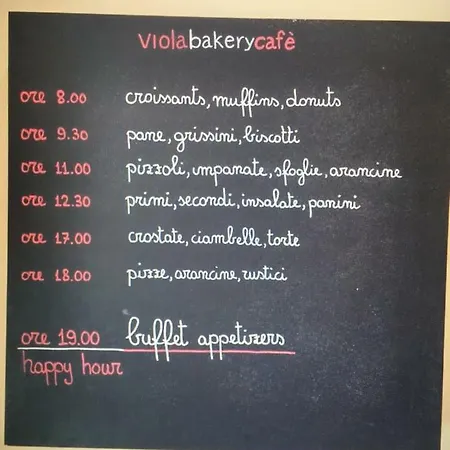 violabakerycafè
ore 8.00 croissants, muffins, donuts
ore 9.30 pane, grissini, biscotti
ore 11.00 pizzoli, impanate, sfoglie, arancine
ore 12.30 primi, secondi, insalate, panini
ore 17.00 crostate, ciambelle, torte
ore 18.00 pizze, arancine, rustici
ore 19.00 buffet appetizers
happy hour